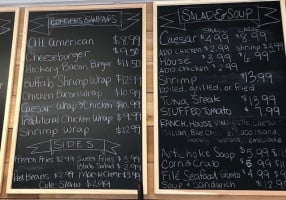 BURGERS & WRAPS
All American $8.99
Cheeseburger
Hickory Bacon Burger $11.50
Buffalo Shrimp Wrap $12.99
Chicken Bacon Wrap $10.99
Caesar Wrap Chicken $10.99
Traditional Chicken Wrap
Shrimp Wrap $12.99
SIDES
French Fries $2.99 Sweet Fries $3.99
Potato Salad $2.99
Red Beans $2.99
Cole Slaw $2.99
SALAD & SOUP
SMALL LARGE
Caesar $4.99 $8.99
ADD CHICKEN $2.99 Shrimp
House $3.99 $6.99
ADD CHICKEN $2.99
Shrimp $13.99
boiled, grilled, or fried
TUNA Steak $13.99
STUFFED TOMATO
RANCH, HOUSE
Italian, Blue 1000 Island,
Honey
Artichoke Soup $5.99
Corn & Crab $5.99
Filé Seafood Gumbo 4.99 $9.99
Soup & Sandwich $12.99